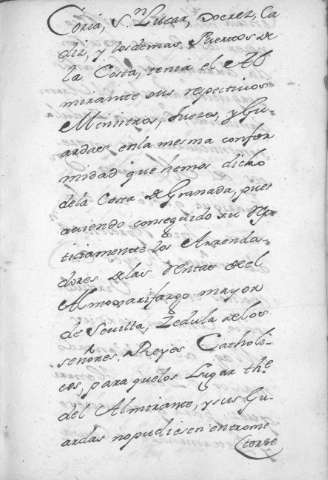 Coria, S.n Lucar, Xerez, Ca
diz, y los demas Puertos de
la Costa, tenia el Al
mirante sus respectivos
Ministros, Juezes, y Gu-
ardas en la mesma confor
midad que hemos dicho
de la Costa de Granada, pues
aviendo conseguido
los Arrenda-
dores de las Rentas del
Almoxarifazgo mayor
de Sevilla, Zedula de los
señores Reyes Catholi-
cos, para que los Lugar the
del Almirante, y sus Gu-
ardas no pudiesen entrome
terse